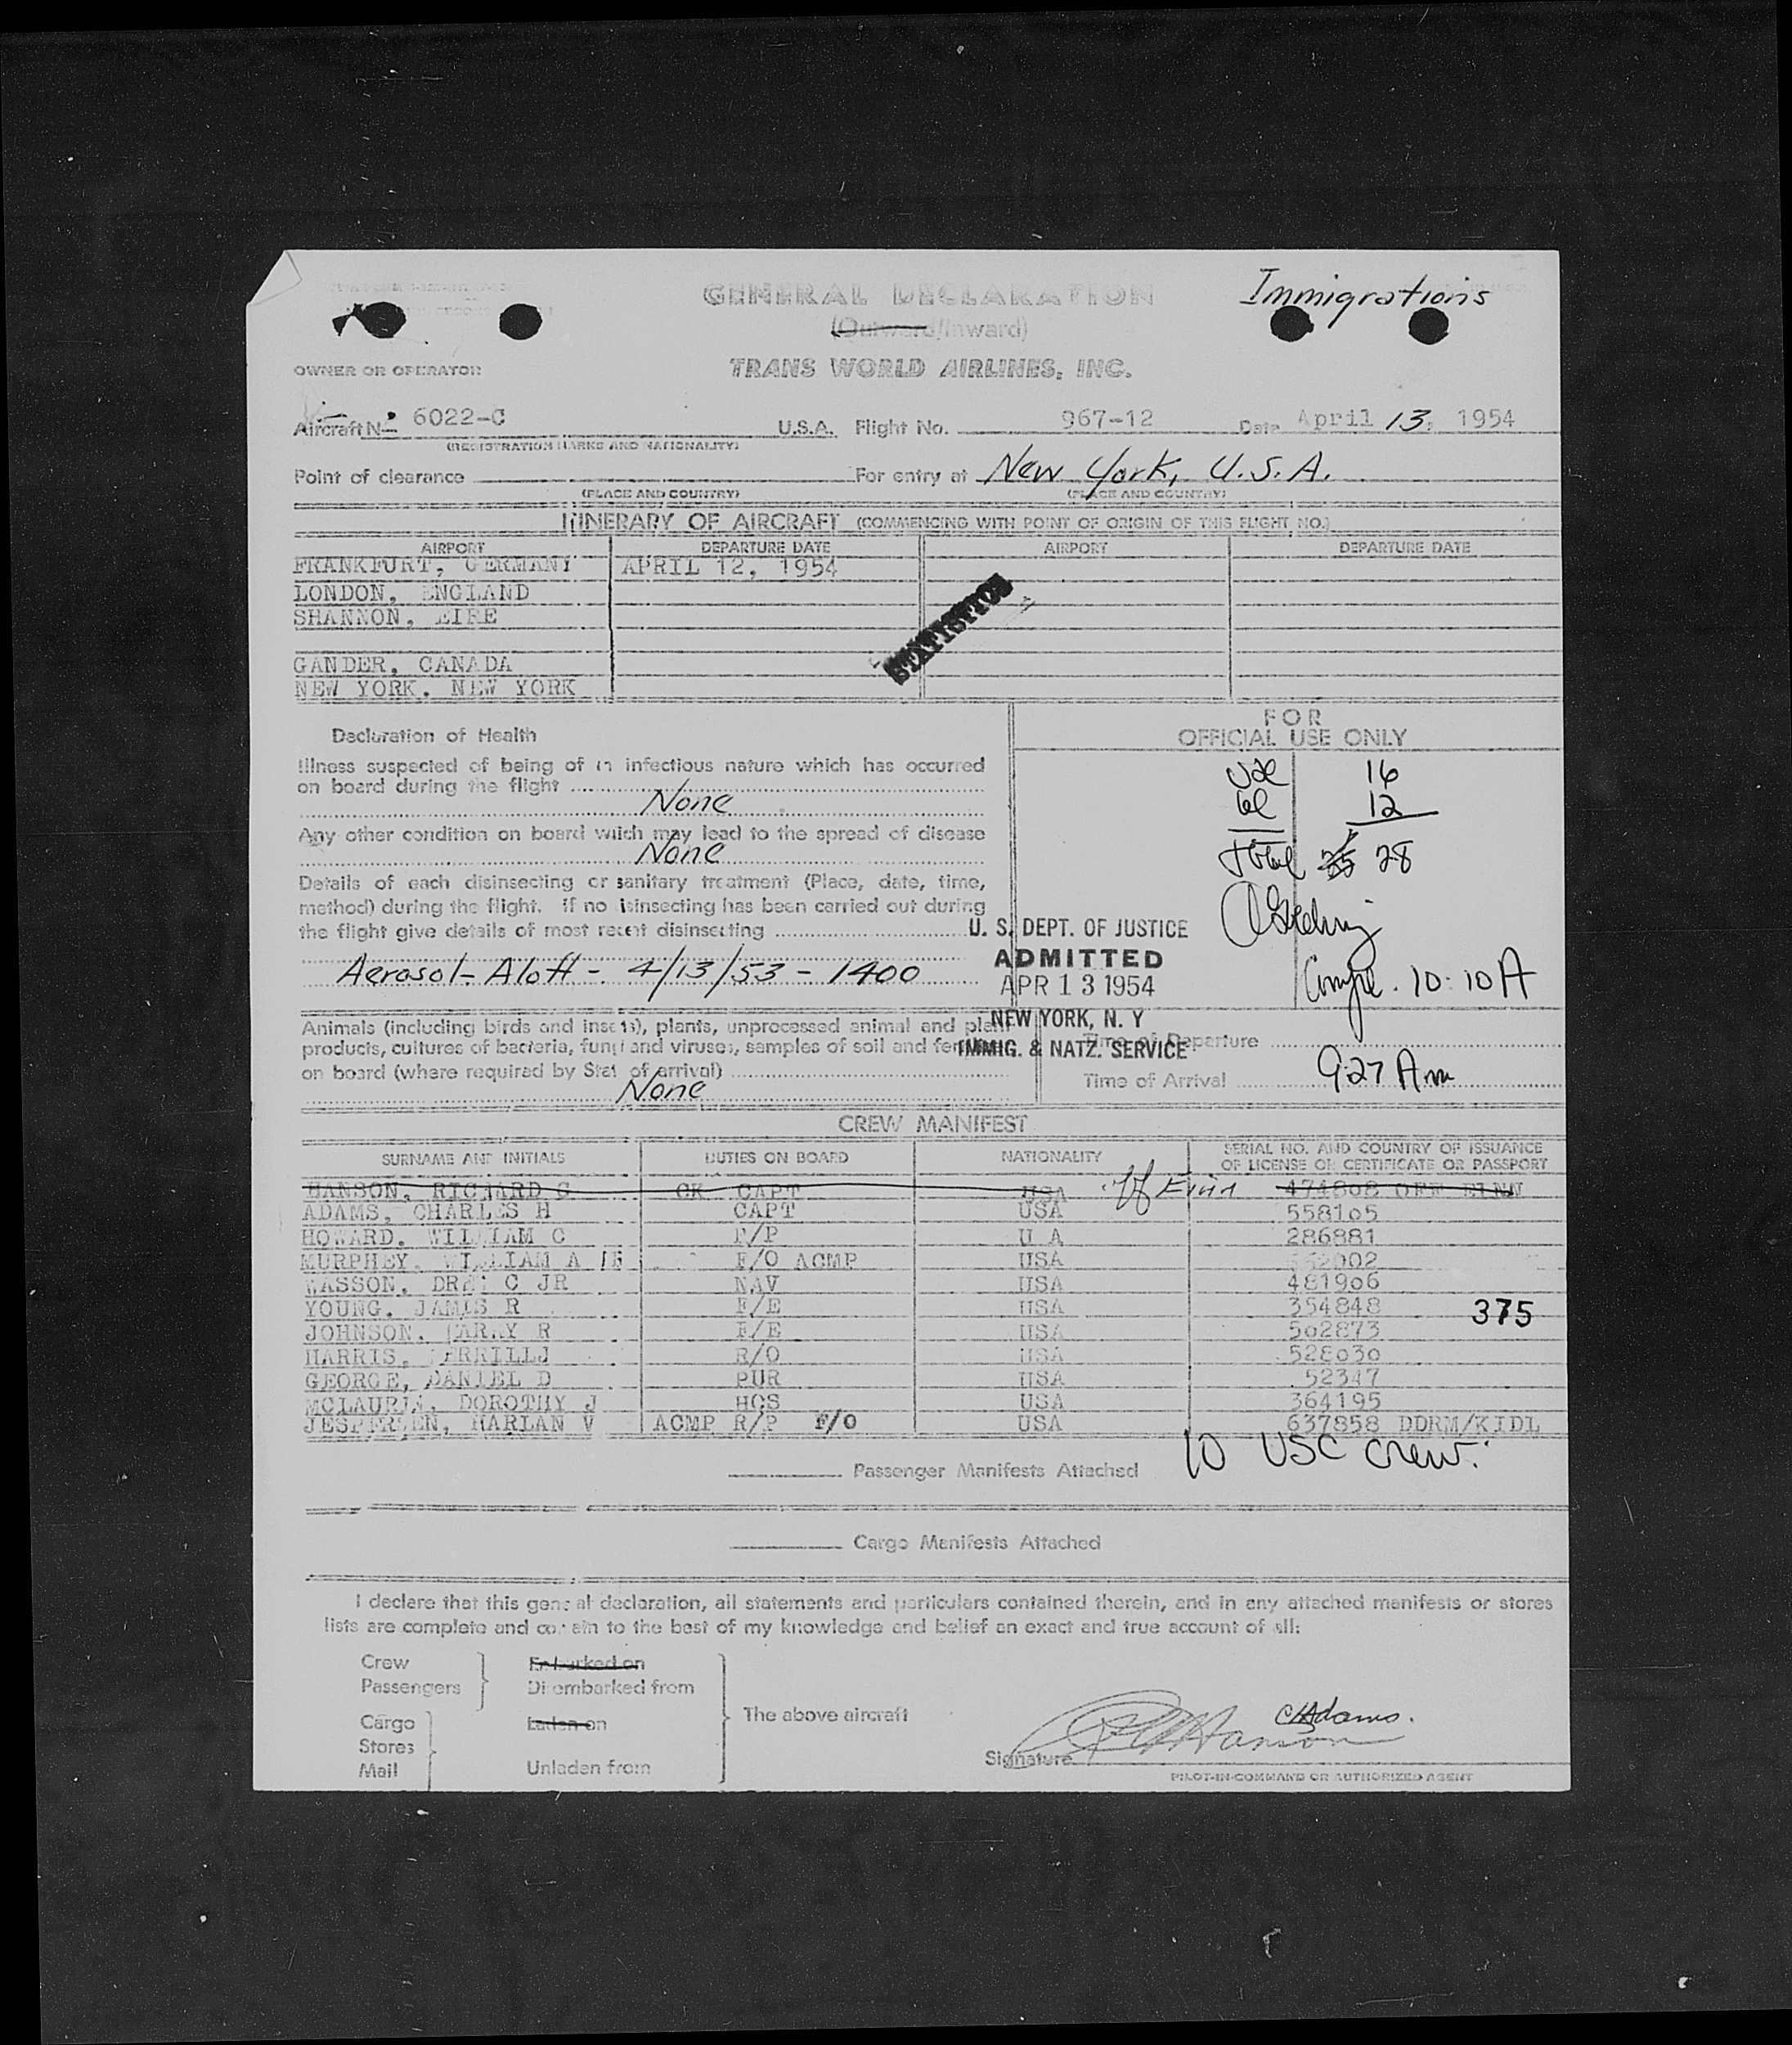 GENERAL DECLARATION
Immigrations
(Outward/Inward)
OWNER OR OPERATOR
TRANS WORLD AIRLINES, INC.
Aircraft N- 6022-C U.S.A. Flight No. 967-12 Date April 13, 1954
(REGISTRATION MARKS AND NATIONALITY)
Point of clearance For entry at New York, U.S.A.
(PLACE AND COUNTRY) (PLACE AND COUNTRY)
ITINERARY OF AIRCRAFT (COMMENCING WITH POINT OF ORIGIN OF THIS FLIGHT NO.)
AIRPORT DEPARTURE DATE AIRPORT DEPARTURE DATE
FRANKFURT, GERMANY APRIL 12, 1954
LONDON, ENGLAND
SHANNON, EIRE
STATISTICS
GANDER, CANADA
NEW YORK, NEW YORK
FOR
OFFICIAL USE ONLY
Declaration of Health
Illness suspected of being of an infectious nature which has occurred
on board during the flight
None
Any other condition on board which may lead to the spread of disease
None
Details of each disinsecting or sanitary treatment (Place, date, time,
method) during the flight. If no disinsecting has been carried out during
the flight give details of most recent disinsecting
Aerosol - Aloft - 4/13/53 - 1400
16
12
Total 28
10:10 A
U. S. DEPT. OF JUSTICE
ADMITTED
APR 13 1954
NEW YORK, N. Y
IMMIG. & NATZ. SERVICE
Animals (including birds and insects), plants, unprocessed animal and plant
products, cultures of bacteria, fungi and viruses, samples of soil and
on board (where required by State of arrival)
None
Time of Departure
Time of Arrival 9:27 Am
CREW MANIFEST
SURNAME AND INITIALS DUTIES ON BOARD NATIONALITY SERIAL NO. AND COUNTRY OF ISSUANCE
OF LICENSE OR CERTIFICATE OR PASSPORT
HANSON, RICHARD G CK CAPT USA off Einn 474808 OFF EINN
ADAMS, CHARLES H CAPT USA 558105
HOWARD, WILLIAM C F/P U A 286881
MURPHEY, WILLIAM A F/O ACMP USA 2002
WASSON, C JR NAV USA 481906
YOUNG, JAMES R F/E USA 354848
375
JOHNSON, R F/E USA 502873
HARRIS, R/O USA 528030
GEORGE, DANIEL D PUR USA 52347
MCLAURIN, DOROTHY J HOS USA 364195
JESPERSEN, HARLAN V ACMP R/P F/O USA 637858 DDRM/KIDL
10 USC crew.
Passenger Manifests Attached
Cargo Manifests Attached
I declare that this general declaration, all statements and particulars contained therein, and in any attached manifests or stores
lists are complete and contain to the best of my knowledge and belief an exact and true account of all:
Crew
Passengers
Embarked on
Disembarked from
Cargo
Stores
Mail
Laden on
Unladen from
The above aircraft
CHAdams.
Signature RGHanson
PILOT-IN-COMMAND OR AUTHORIZED AGENT